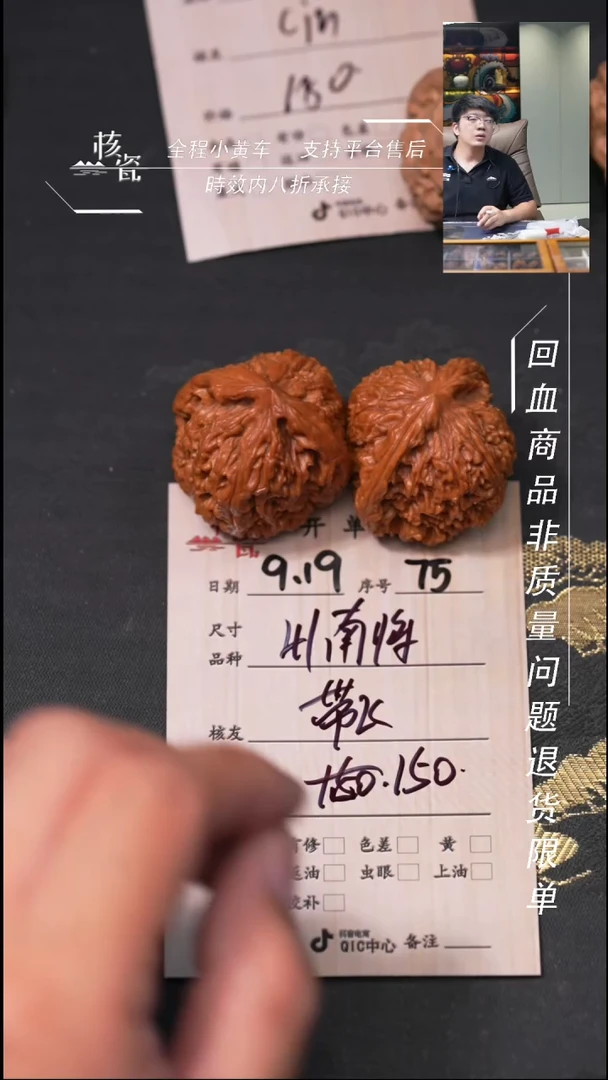 180
核瓷
全程小黄车 支持平台售后
時效内八折承接
QIC中心 备
回血商品非质量问题退货限单
开单
日期 9.19 序号 75
尺寸
品种
南将
核友
150.
修 色差 黄
油 虫眼 上油
补
抖音电商
QIC中心 备注